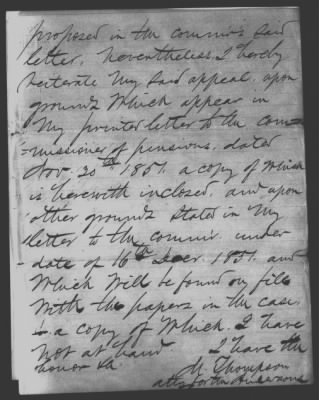 proposed in the commr's said
letter. Nevertheless, I hereby
reiterate my said appeal, upon
grounds which appear in
my printed letter to the com=
=missioner of pensions, dated
Nov. 20th 1851. a copy of which
is herewith inclosed, and upon
other grounds stated in my
letter to the commr. under
date of 16th Decr. 1851. and
which will be found on file
with the papers in the case,
a copy of which I have
not at hand I have the
honor &c
M. Thompson
atty for the